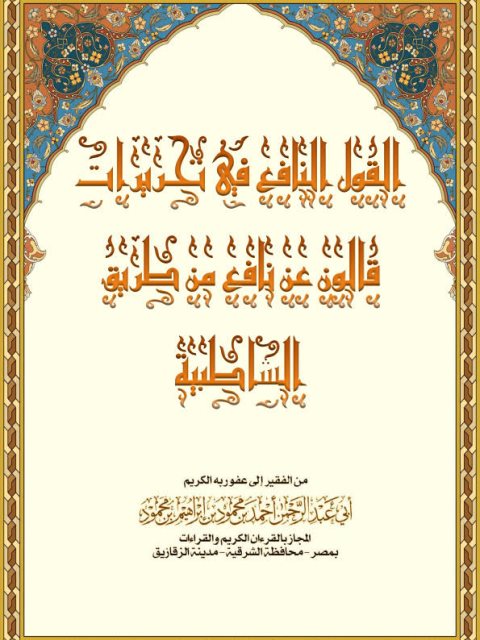 القول النافع في تحريرات
قالون عن نافع من طريق
الشاطبية
من الفقير إلى عفو ربه الكريم
أبي عبد الرحمن أحمد بن محمود بن إبراهيم بن محمود
المجاز بالقرءان الكريم والقراءات
بمصر - محافظة الشرقية - مدينة الزقازيق